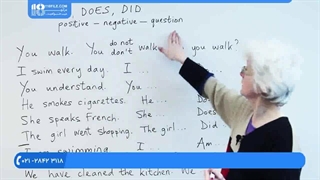 DOES, DID
positive – negative – question
You walk. You do not don't walk you walk?
I swim every day. I ...
You understand. You ...
He smokes cigarettes. He... Do
She speaks French. She... Does
The girl went shopping. The girl... Did
swimming. I ... Am...
We have cleaned the kitchen. We
۰۲۱-۲۸۴۲ ۳۱۱۸